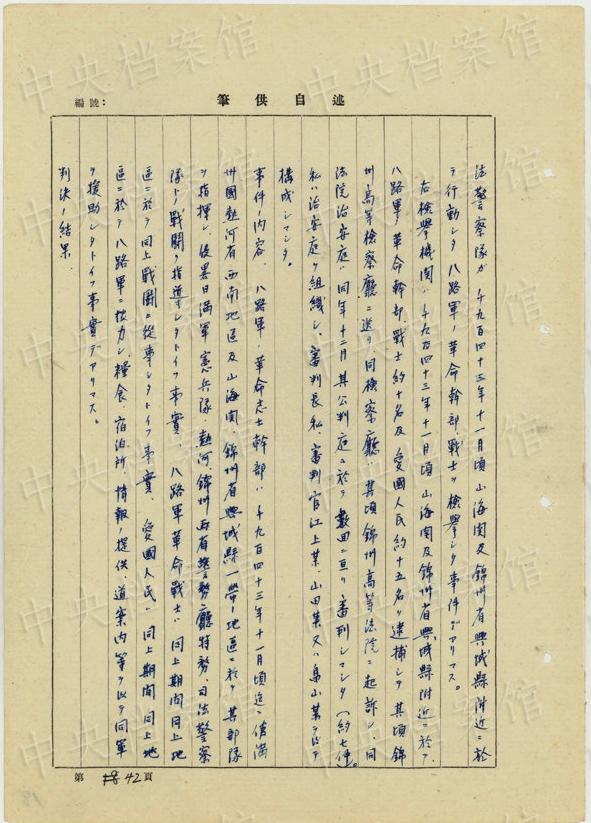 編號：
筆供自述
法警察隊ガ千九百四十三年十一月頃山海関及錦州省興城縣附近ニ於
テ行動シタ八路軍ノ革命幹部、戦士ヲ検挙シタ事件デアリマス。
右検挙機関ハ千九百四十三年十一月頃山海関及錦州省興城縣附近ニ於テ
八路軍ノ革命幹部、戦士約十名及愛國人民約十五名ヲ逮捕シテ其頃錦
州高等検察廳ニ送リ、同検察廳ハ其頃錦州高等法院ニ起訴シ、同
法院治安庭ハ同年十二月其公判庭ニ於テ数回ニ亘リ審判シマシタ（約七件）。
私ハ治安庭ヲ組織シ、審判長私、審判官江上某、山田某又ハ畠山某ヲ以テ
構成シマシタ。
事件ノ内容、八路軍ノ革命志士幹部ハ千九百四十三年十一月頃迄ニ偽満
州國熱河省西南地區及山海関、錦州省興城縣一帯ノ地區ニ於テ其部隊
ヲ指揮シ、後異日満軍憲兵隊、熱河、錦州両省警務廳特務、司法警察
隊トノ戦闘ヲ指導シタトイフ事實、八路軍革命戦士ハ同上期間同上地
區ニ於テ同上戦闘ニ従事シタトイフ事實、愛國人民ハ同上期間同上地
區ニ於テ八路軍ニ協力シ、糧食、宿泊所、情報ノ提供、道案内等ヲ以テ同軍
ヲ援助シタトイフ事實デアリマス。
判決ノ結果、
第 42頁
中央档案馆